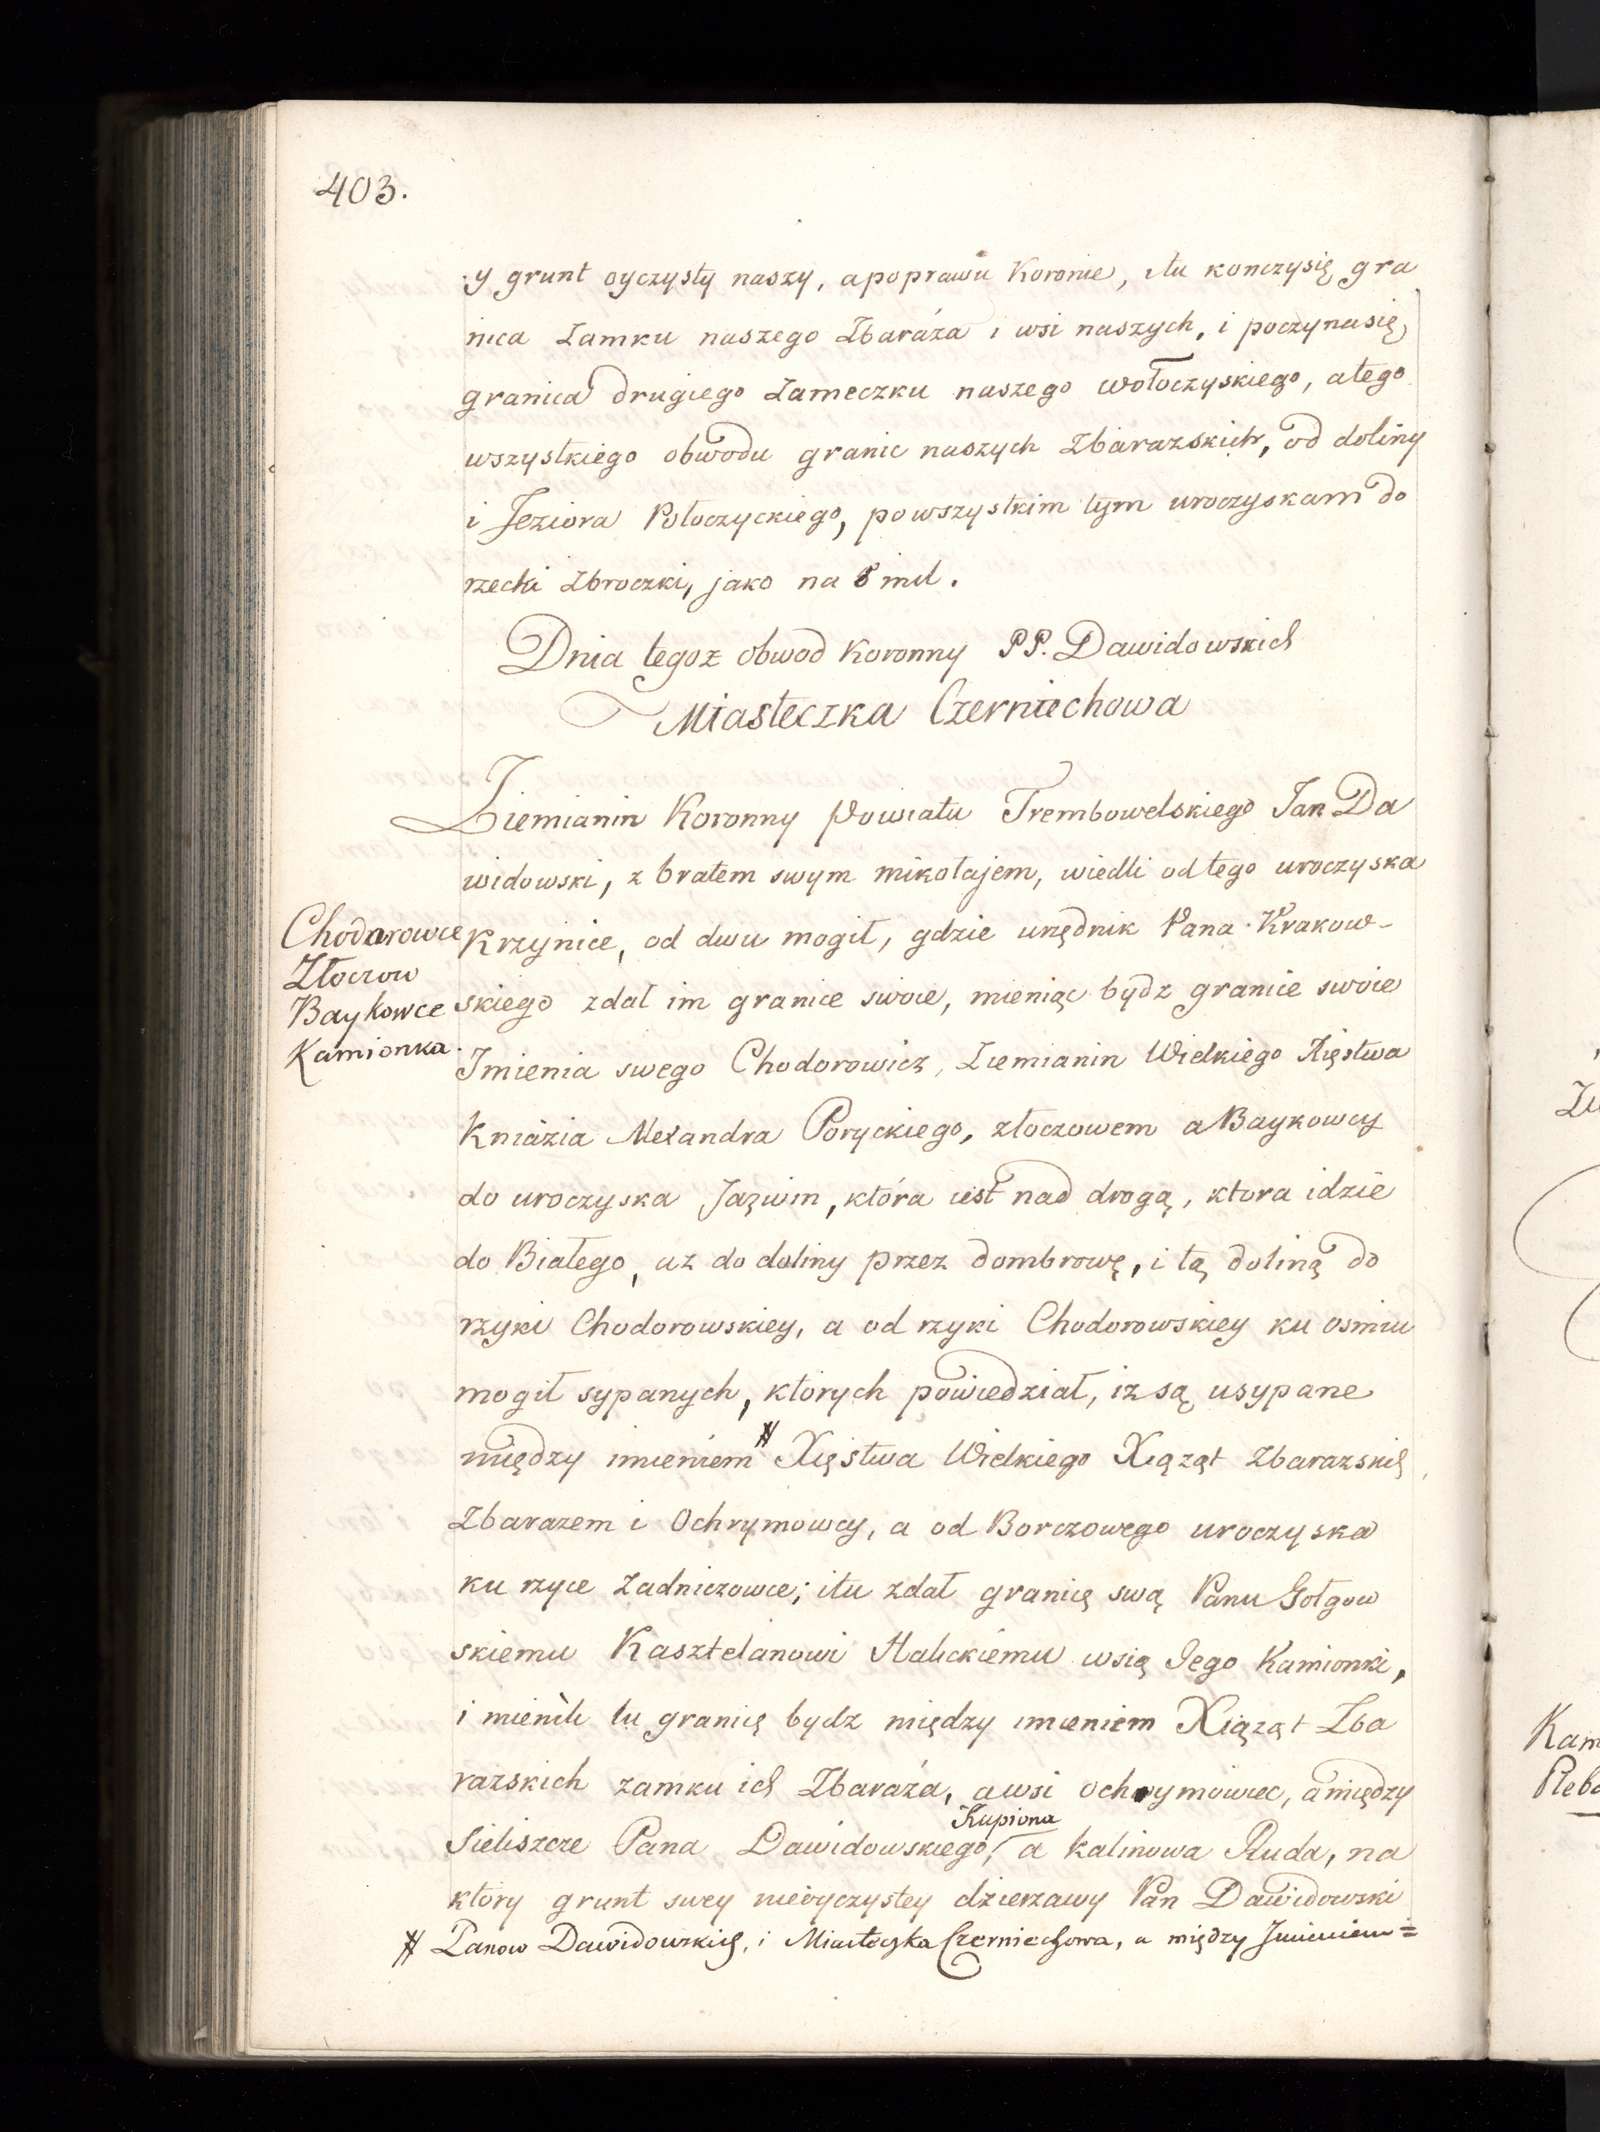 403.
y grunt oyczysty naszy, apoprawu Koronie, itu konczysię gra
nica Zamku naszego Zbaráza i wsi naszych, i poczynasię,
granica drugiego Zameczku naszego wołoczyskiego, atego
wszystkiego obwodu granic naszych Zbarazskich, od doliny
i Jeziora Potoczyckiego, powszystkim tym uroczyskam do
rzecki Zbroczki, jako na 8 mil.
Dnia tegoz obwod Koronny PP. Dawidowskich
Miasteczka Czerniechowa
Ziemianin Koronny Powiatu Trembowelskiego Jan Da
widowski, z bratem swym mikołajem, wiedli od tego uroczyska
Krzynice, od dwu mogił, gdzie urzędnik Pana Krakow-
skiego zdał im granice swoie, mieniąc bydz granice swoie
Imienia swego Chodorowicz, Ziemianin Wielkiego Xięstwa
Kniázia Alexandra Poryckiego, złoczowem a Baykowcy
do uroczyska Jazwin, która iest nad drogą, ktora idzie
do Białego, az do doliny przez dombrowę, i tą doliną do
rzyki Chodorowskiey, a od rzyki Chodorowskiey ku osmiu
mogił sypanych, ktorych powiedział, iz są usypane
między imieniem # Xięstwa Wielkiego Xiąząt Zbarazskich
Zbarazem i Ochrymowcy, a od Borczowego uroczyska
ku rzyce Zadniczowce; itu zdał granicę swą Panu Gołgow
skiemu Kasztelanowi Halickiemu wsią Jego Kamionki,
i mienili tu granicę bydz między imieniem Xiąząt Zba
razskich zamku ich Zbaráza, awsi ochrymowiec, a między
Sieliszcze Pana Dawidowskiego, Kupiona a Kalinowa Ruda, na
ktory grunt swey nieoyczystey dzierzawy Pan Dawidowski
# Panow Dawidowskich, i Miasteczka Czerniechowa, a między Imieniem =
Chodorowce
Złoczow
Baykowce
Kamionka.